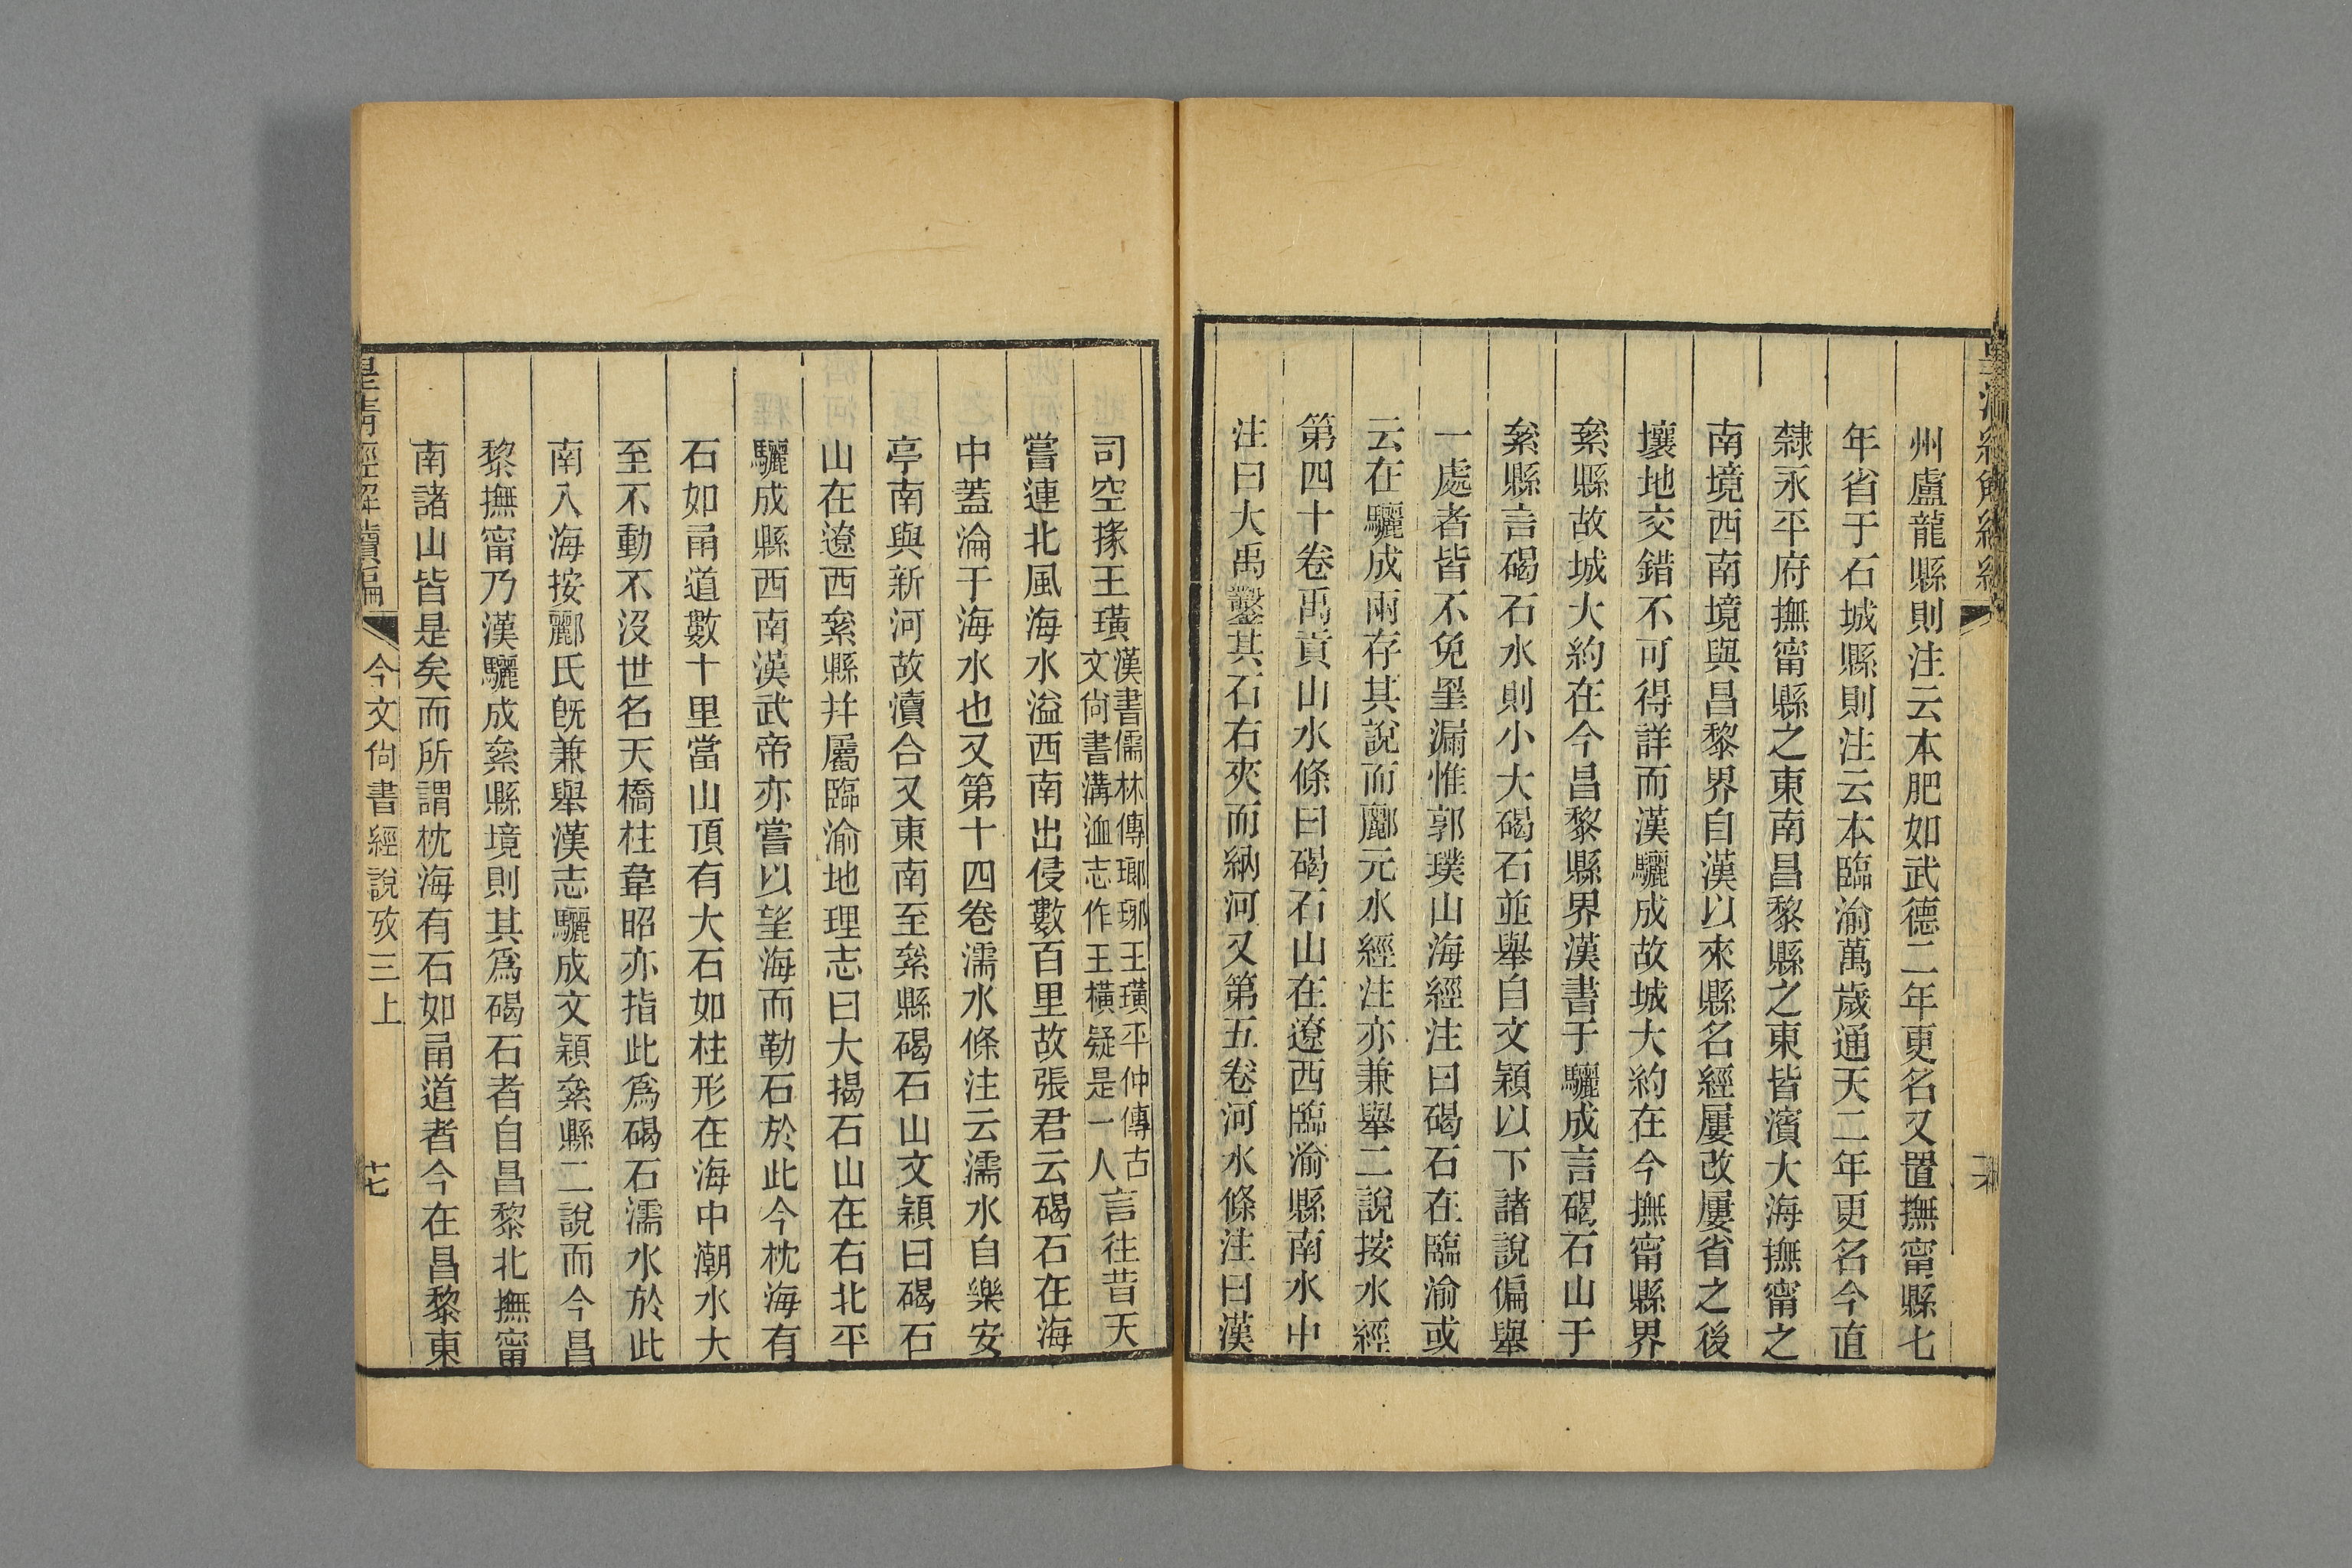 州盧龍縣則注云本肥如武德二年更名又置撫甯縣七
年省于石城縣則注云本臨渝萬歲通天二年更名今直
隸永平府撫甯縣之東南昌黎縣之東皆濱大海撫甯之
南境西南境與昌黎界自漢以來縣名經屢改屢省之後
壤地交錯不可得詳而漢驪成故城大約在今撫甯縣界
絫縣故城大約在今昌黎縣界漢書于驪成言碣石山于
絫縣言碣石水則小大碣石並舉自文穎以下諸說偏舉
一處者皆不免罣漏惟郭璞山海經注曰碣石在臨渝或
云在驪成兩存其說而酈元水經注亦兼舉二說按水經
第四十卷禹貢山水條曰碣石山在遼西臨渝縣南水中
注曰大禹鑿其石右夾而納河又第五卷河水條注曰漢
司空掾王璜漢書儒林傳瑯琊王璜平仲傳古文尚書溝洫志作王橫疑是一人言往昔天
嘗連北風海水溢西南出侵數百里故張君云碣石在海
中蓋淪于海水也又第十四卷濡水條注云濡水自樂安
亭南與新河故瀆合又東南至絫縣碣石山文穎曰碣石
山在遼西絫縣并屬臨渝地理志曰大揭石山在右北平
驪成縣西南漢武帝亦嘗以望海而勒石於此今枕海有
石如甬道數十里當山頂有大石如柱形在海中潮水大
至不動不沒世名天橋柱韋昭亦指此為碣石濡水於此
南入海按酈氏旣兼舉漢志驪成文穎絫縣二說而今昌
黎撫甯乃漢驪成絫縣境則其爲碣石者自昌黎北撫甯
南諸山皆是矣而所謂枕海有石如甬道者今在昌黎東
皇清經解續編
今文尚書經說攷三上
十七